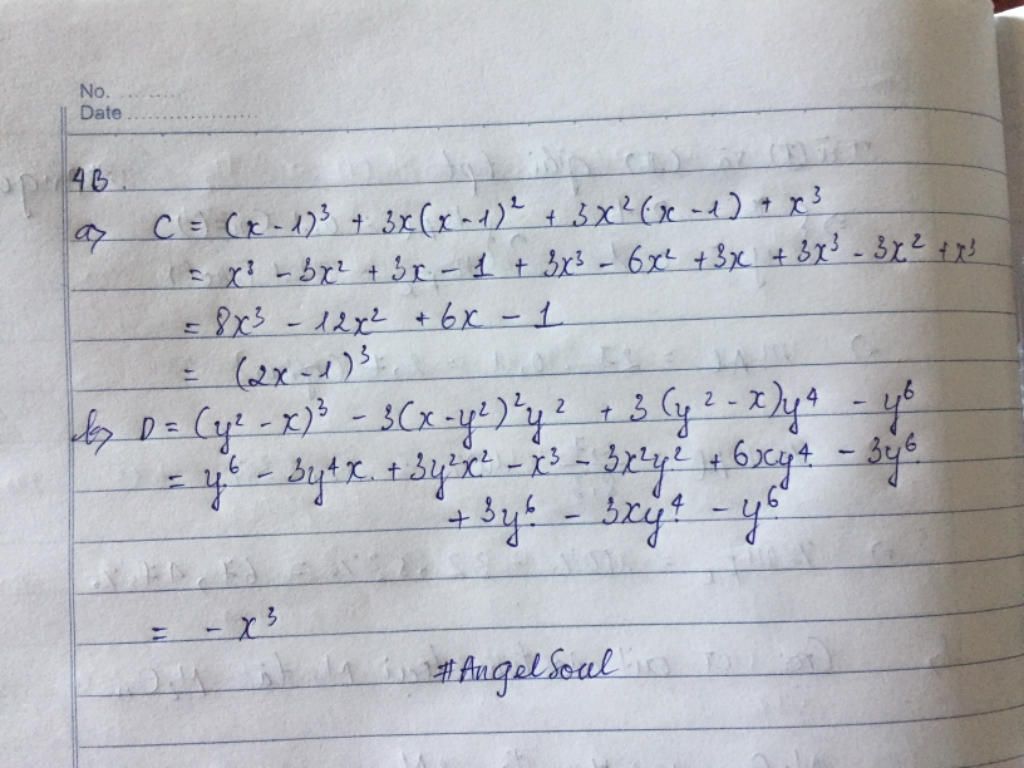 No. ..........
Date ....................
4B.
a> C = (x - 1)³ + 3x(x - 1)² + 3x²(x - 1) + x³
= x³ - 3x² + 3x - 1 + 3x³ - 6x² + 3x + 3x³ - 3x² + x³
= 8x³ - 12x² + 6x - 1
= (2x - 1)³
b> D = (y² - x)³ - 3(x - y²)²y² + 3(y² - x)y⁴ - y⁶
= y⁶ - 3y⁴x + 3y²x² - x³ - 3x²y² + 6xy⁴ - 3y⁶
+ 3y⁶ - 3xy⁴ - y⁶
= - x³
#AngelSoul